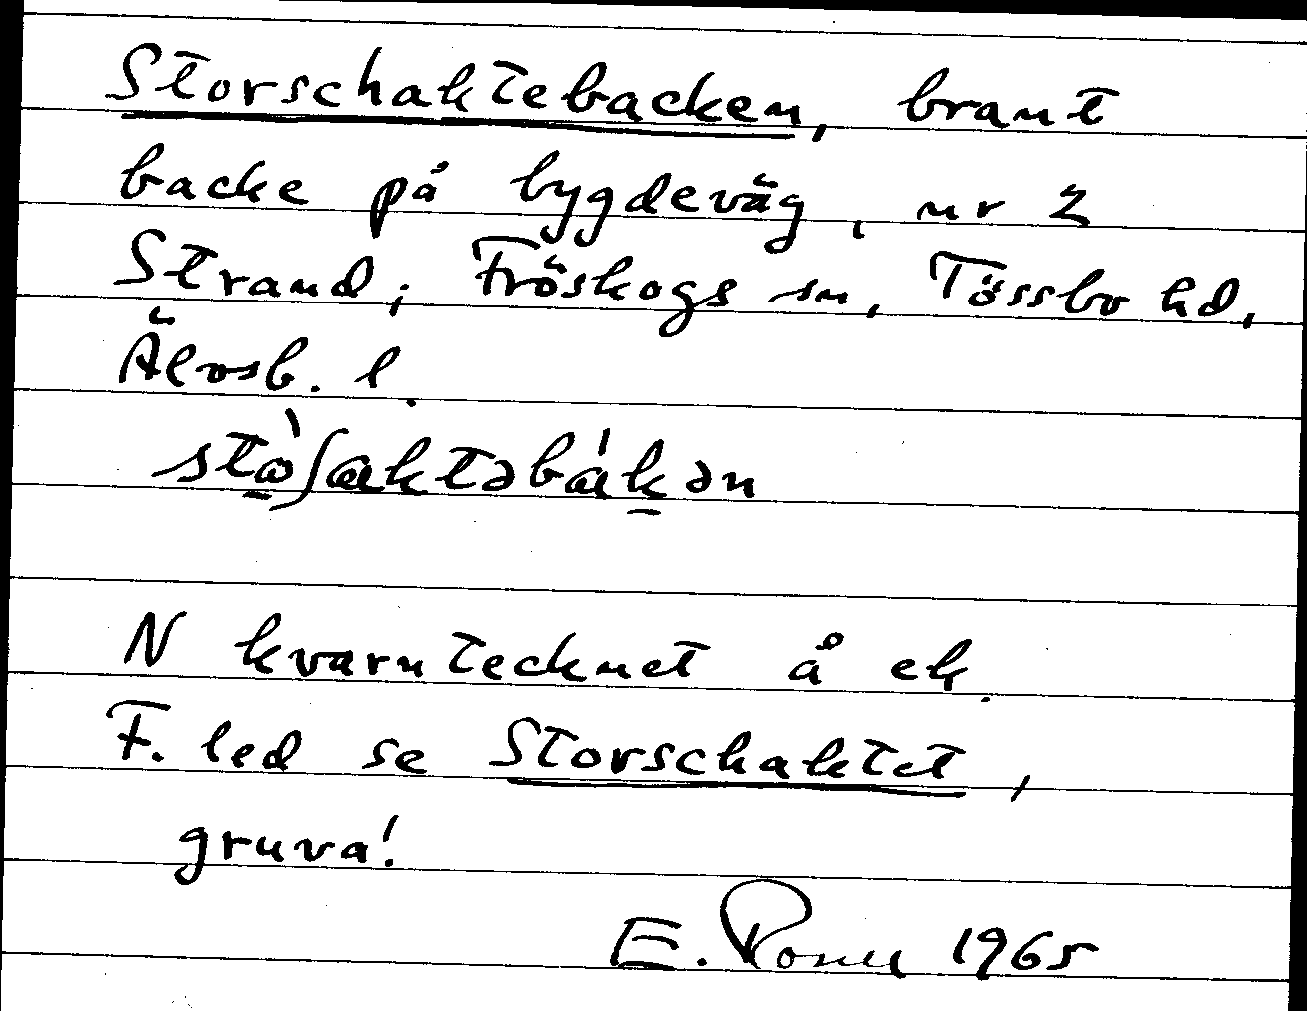 Storschaktebacken, brant
backe på bygdeväg, nr 2
Strand, Fröskogs sn, Tössbo hd,
Älvsb. l.
stò̱ʃaktəbáḵən
N kvarntecknet å ek.
F. led se Storschaktet,
gruva!
E. 1965